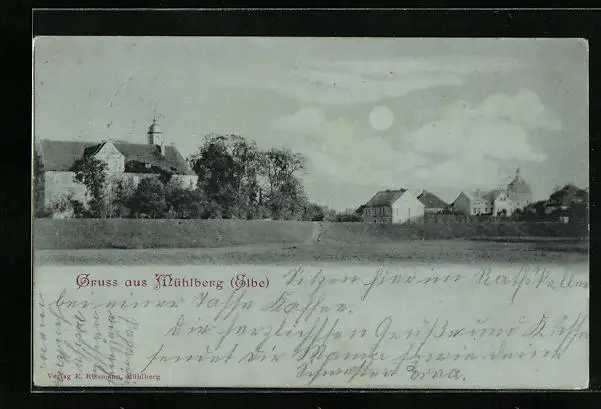 Gruss aus Mühlberg (Elbe)
Sitzen hier im Rathskeller
bei einer Tasse Kaffee.
Die herzlichsten Grüße und Küsse
sendet dir Mama sowie deine
Schwester Erna.
Verlag E. Rissmann, Mühlberg